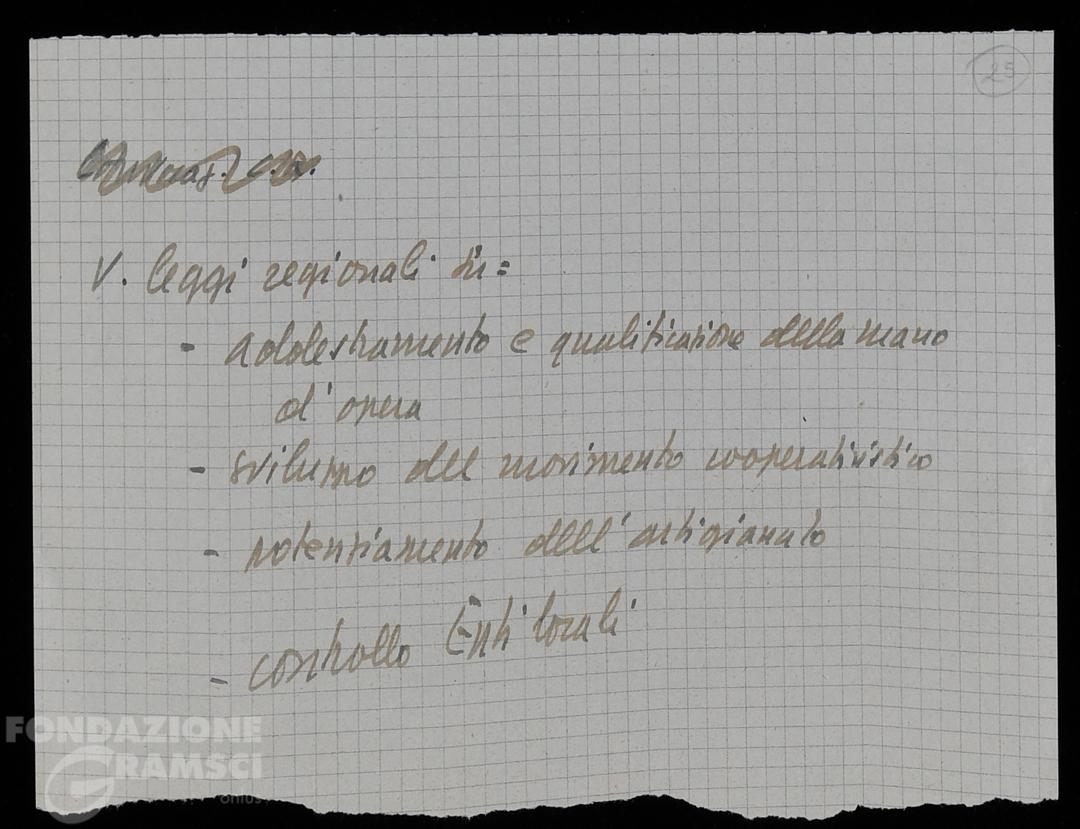 25
V. leggi regionali su:
- addestramento e qualificazione della mano
d'opera
- sviluppo del movimento cooperativistico
- potenziamento dell'artigianato
- controllo Enti locali
FONDAZIONE
GRAMSCI
onlus